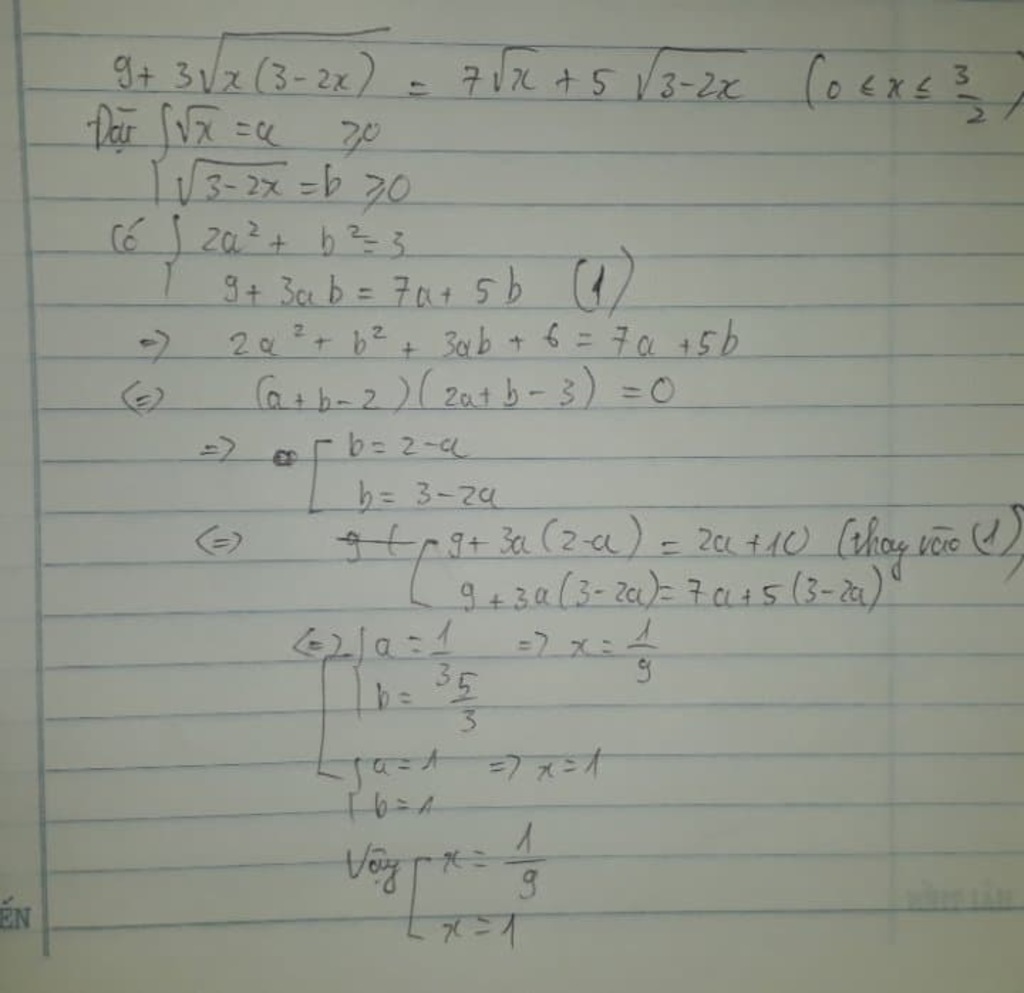 9 + 3√(x(3-2x)) = 7√x + 5√(3-2x) (0 ≤ x ≤ 3/2)
Đặt { √x = a ≥ 0
{ √(3-2x) = b ≥ 0
Có { 2a² + b² = 3
{ 9 + 3ab = 7a + 5b (1)
=> 2a² + b² + 3ab + 6 = 7a + 5b
<=> (a + b - 2)(2a + b - 3) = 0
=> [ b = 2 - a
[ b = 3 - 2a
<=> [ 9 + 3a(2-a) = 2a + 10 (thay vào (1)
[ 9 + 3a(3-2a) = 7a + 5(3-2a)
<=> [ { a = 1/3 => x = 1/9
{ b = 5/3
[ { a = 1 => x = 1
{ b = 1
Vậy [ x = 1/9
[ x = 1
ẾN